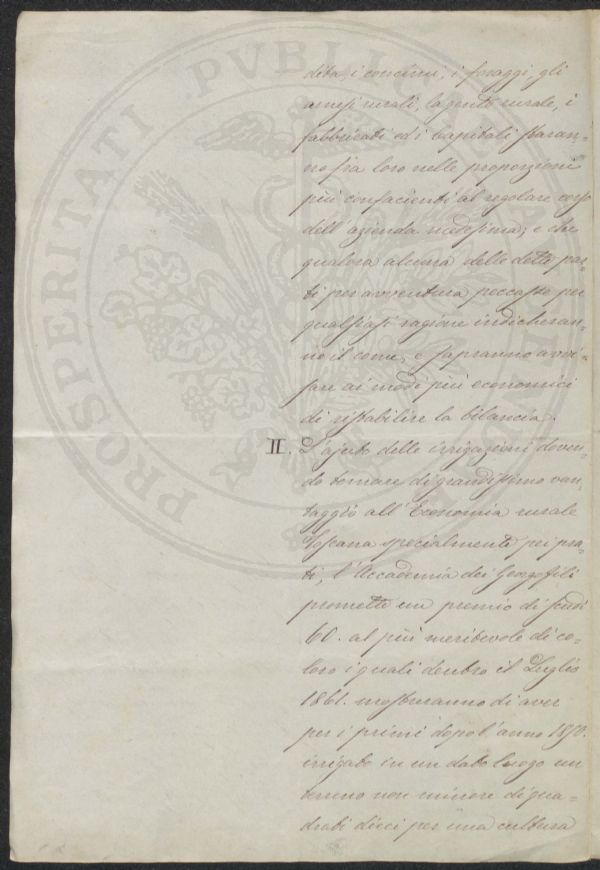 dita, i concimi, i foraggi, gli
arnesi rurali, la gente rurale, i
fabbricati ed i Capitali staran-
no fra loro nelle proporzioni
più confacienti al regolare corso
dell'azienda medesima; e che
qualora alcuna delle dette par-
ti per avventura peccasse per
qualsiasi ragione indicheran-
no il come, e sapranno avvi-
sare ai modi più economici
di ristabilire la bilancia.
II. L'ajuto delle irrigazioni doven-
do tornare di grandissimo van-
taggio all'Economia rurale
Toscana specialmente pei pra-
ti, l'Accademia dei Georgofili
promette un premio di scudi
60. al più meritevole di co-
loro i quali dentro il Luglio
1861. mostreranno di aver
per i primi dopo l'anno
irrigato in un dato luogo un
terreno non minore di qua-
drati dieci per una cultura
PROSPERITATI PVBLICAE